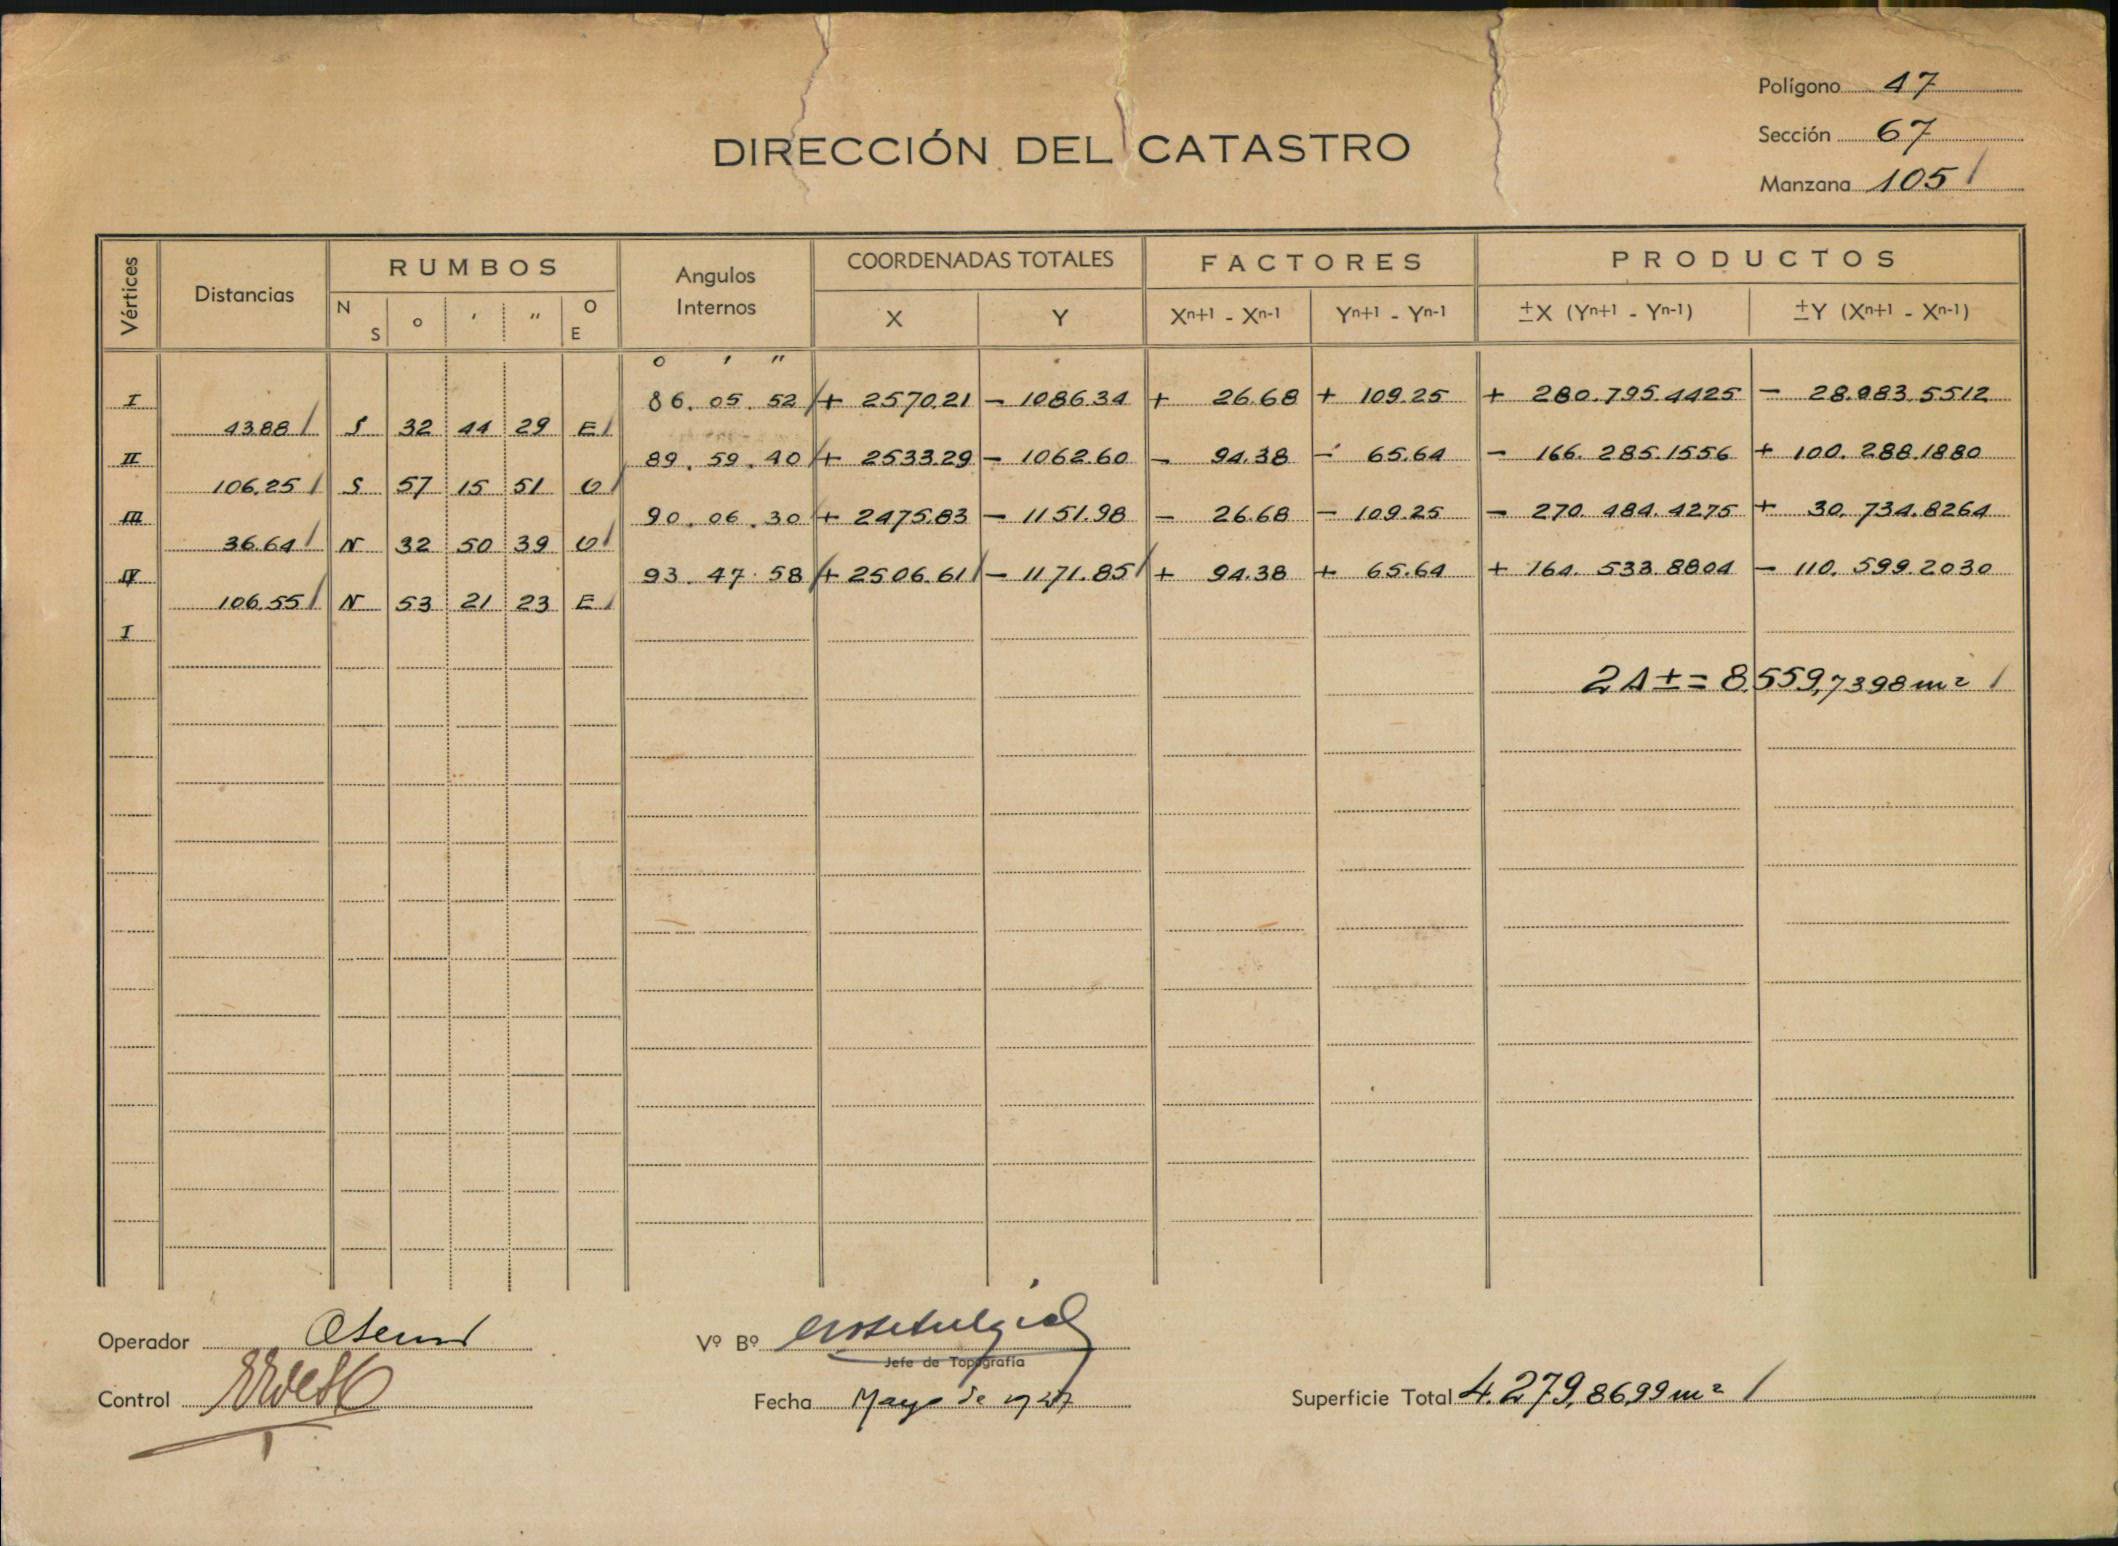 Polígono 47
Sección 67
Manzana 105
DIRECCIÓN DEL CATASTRO
Vértices Distancias RUMBOS Angulos Internos COORDENADAS TOTALES FACTORES PRODUCTOS
N S o ' " O E X Y Xn+1 - Xn-1 Yn+1 - Yn-1 ±X (Yn+1 - Yn-1) ±Y (Xn+1 - Xn-1)
o ' "
I 86. 05. 52 + 2570.21 - 1086.34 + 26.68 + 109.25 + 280.795.4425 - 28.983.5512
43.88 S 32 44 29 E
II 89. 59. 40 + 2533.29 - 1062.60 - 94.38 - 65.64 - 166.285.1556 + 100.288.1880
106.25 S 57 15 51 O
III 90. 06. 30 + 2475.83 - 1151.98 - 26.68 - 109.25 - 270.484.4275 + 30.734.8264
36.64 N 32 50 39 O
IV 93. 47. 58 + 2506.61 - 1171.85 + 94.38 + 65.64 + 164.533.8804 - 110.599.2030
106.55 N 53 21 23 E
I
2A±= 8.559,7398 m²
Operador
Vº Bº
Jefe de Topografía
Control
Fecha Mayo de 1947
Superficie Total 4.279,8699 m²